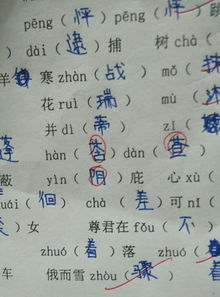 pēng（怦）pēng（怦）
）dài（逮）捕 树chà（
羊 寒zhàn（战） mǒ（抹
花ruì（瑞） mù（沐
并dì（蒂） zī（
蓬 hàn（ ）dàn（查）
蔽 yìn（阴）庇 心xù（
uái（徊） chà（差）可nǐ（
）女 尊君在fǒu（不）
zhuó（着）落 zhuó（
车 俄而雪zhòu（骤）